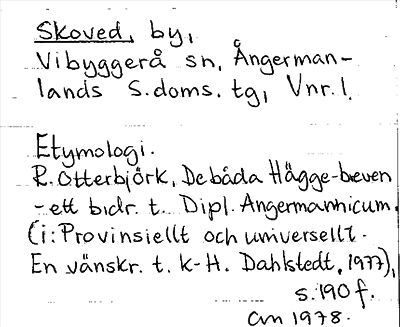 Skoved, by,
Vibyggerå sn, Ångerman-
lands S. doms. tg, Vnr. l.
Etymologi.
R. Otterbjörk, De båda Hägge-breven
- ett bidr. t. Dipl. Angermannicum.
(i: Provinsiellt och universellt.
En vänskr. t. K-H. Dahlstedt, 1977),
s. 190 f.
am 1978.